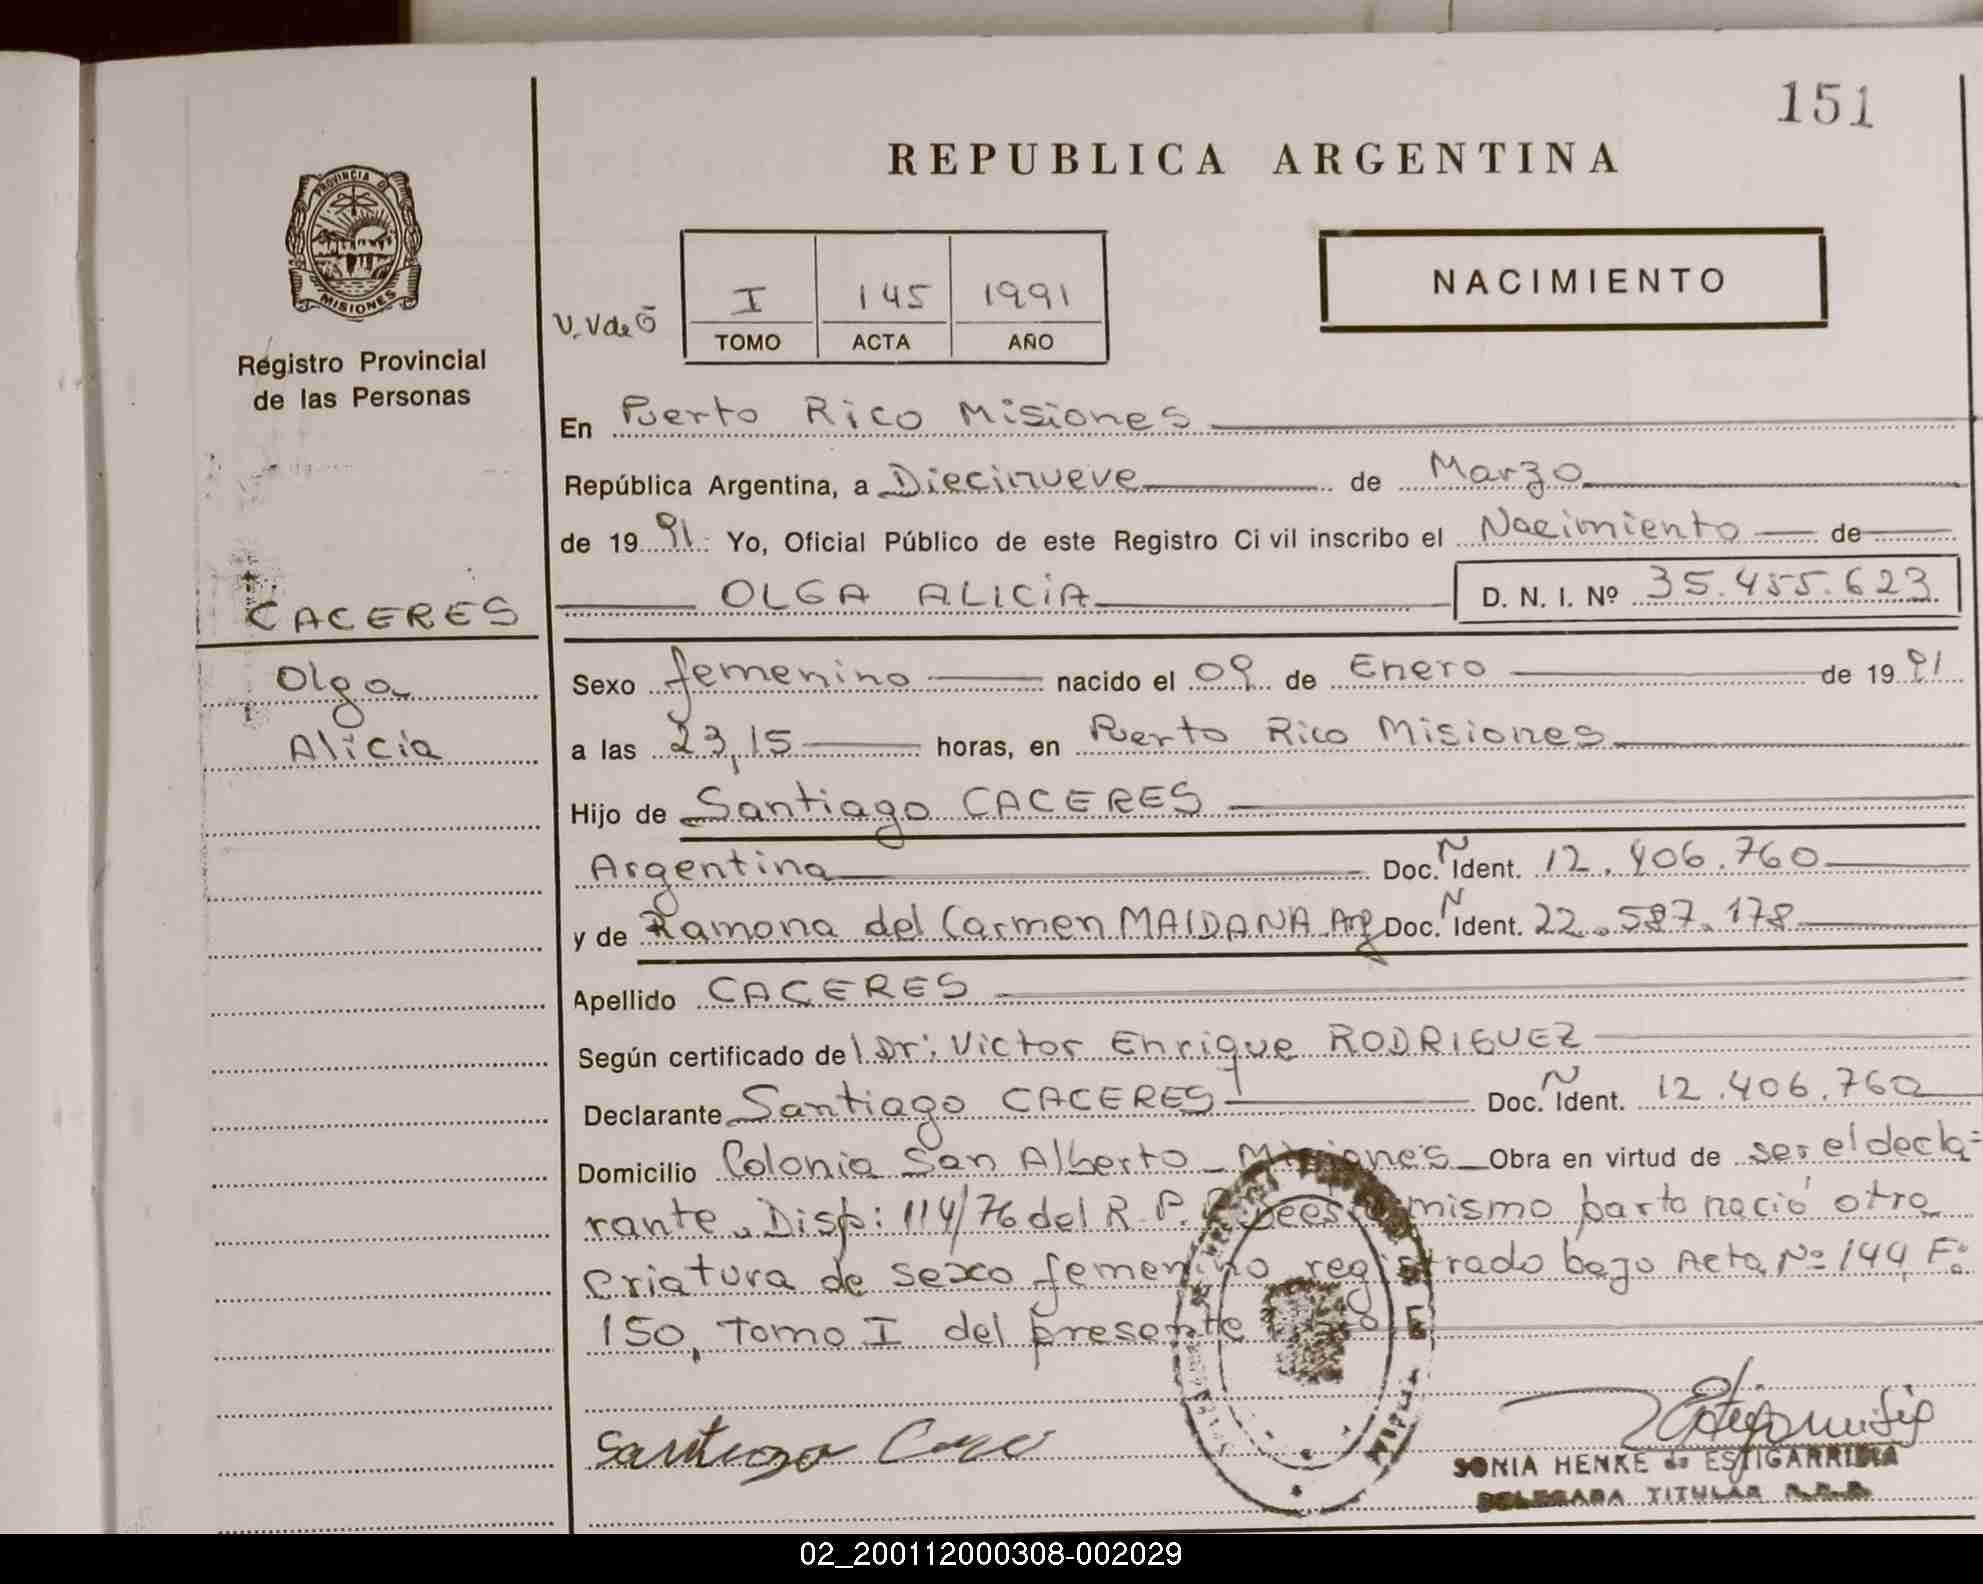 151
REPUBLICA ARGENTINA
PROVINCIA DE
MISIONES
Registro Provincial
de las Personas
V. V de O
I 145 1991
TOMO ACTA AÑO
NACIMIENTO
En Puerto Rico Misiones
República Argentina, a Diecinueve de Marzo
de 1991. Yo, Oficial Público de este Registro Civil inscribo el Nacimiento de
OLGA ALICIA D. N. I. Nº 35.455.623
CACERES
Olga
Alicia
Sexo femenino nacido el 09 de Enero de 1991
a las 23,15 horas, en Puerto Rico Misiones
Hijo de Santiago CACERES
Argentina Doc. N Ident. 12.406.760
y de Ramona del Carmen MAIDANA Arg Doc. N Ident. 22.587.178
Apellido CACERES
Según certificado del Dr: Victor Enrique RODRIGUEZ
Declarante Santiago CACERES Doc. N Ident. 12.406.760
Domicilio Colonia San Alberto - Misiones Obra en virtud de ser el decla=
rante. Disp: 114/76 del R. P. mismo parto nació otra
criatura de sexo femenino registrado bajo Acta Nº 144, Fº
150, Tomo I del presente
Santiago
SONIA HENKE de ESTIGARRIBIA
DELEGADA TITULAR R.P.P.
02_200112000308-002029